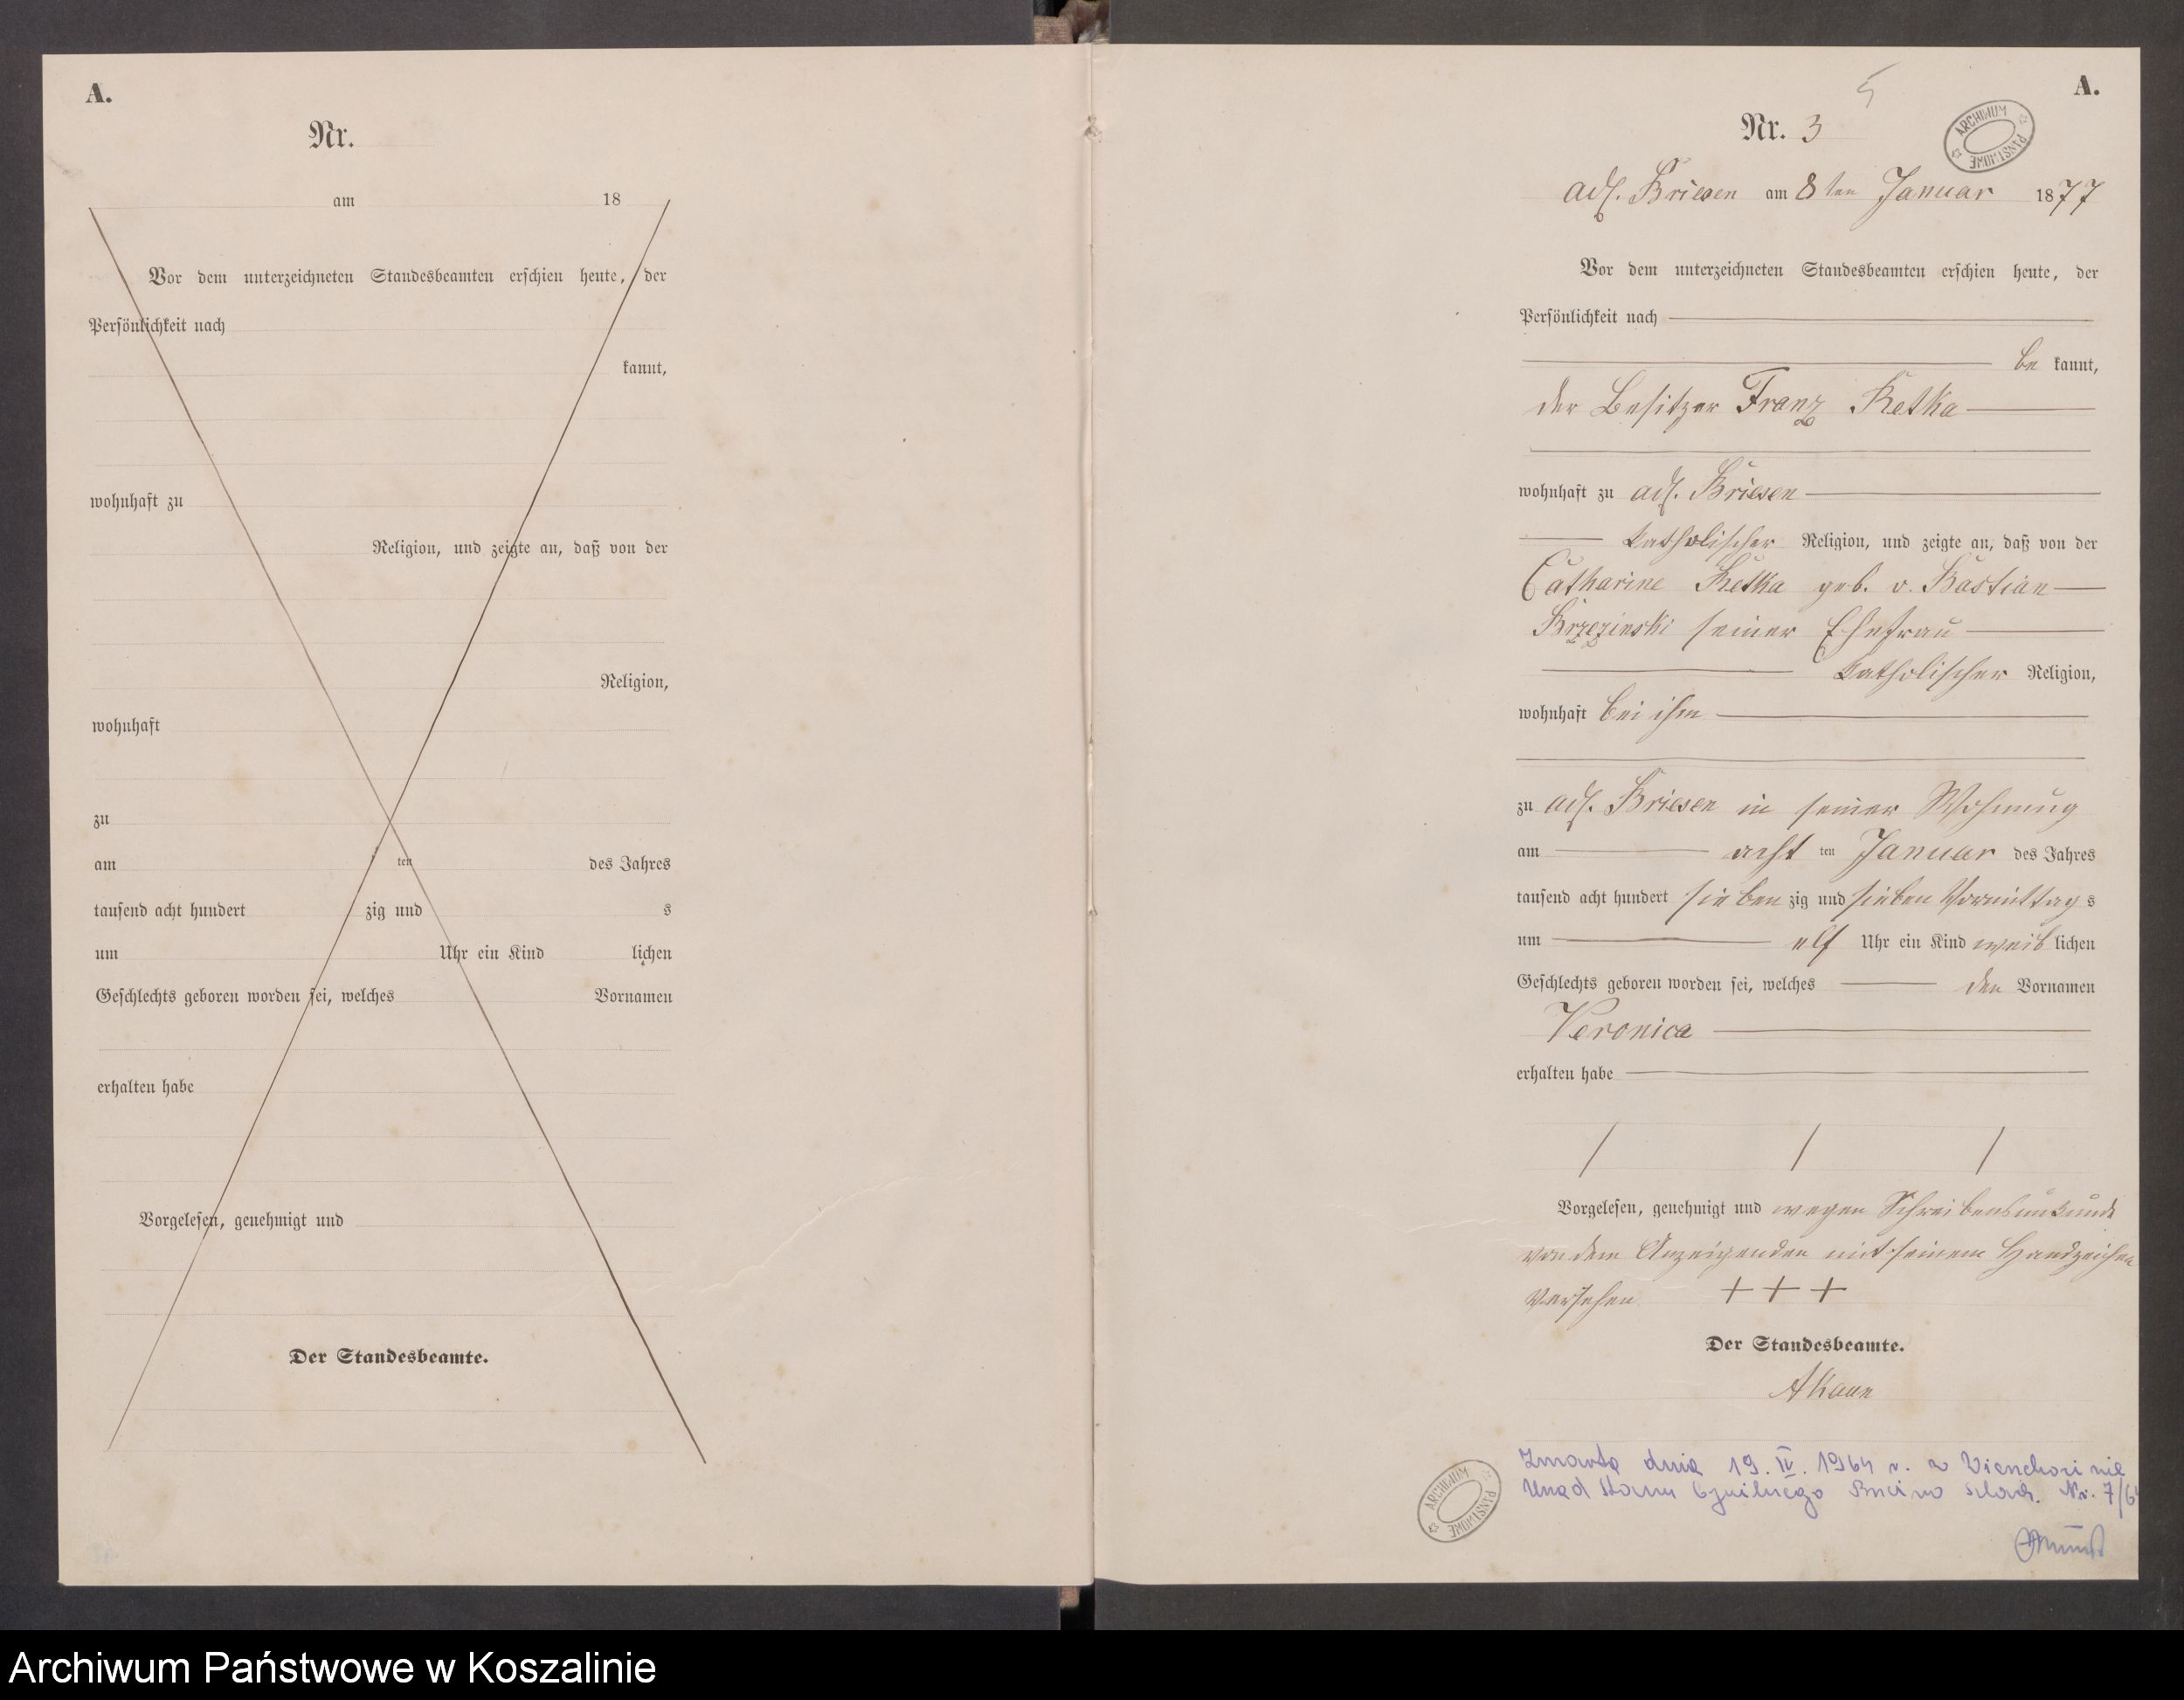 A.
Nr.
am 18
Vor dem unterzeichneten Standesbeamten erschien heute, der
Persönlichkeit nach
kannt,
wohnhaft zu
Religion, und zeigte an, daß von der
Religion,
wohnhaft
zu
am ten des Jahres
tausend acht hundert zig und s
um Uhr ein Kind lichen
Geschlechts geboren worden sei, welches Vornamen
erhalten habe
Vorgelesen, genehmigt und
Der Standesbeamte.
5
A.
Nr. 3
ARCHIWUM PAŃSTWOWE
adl. Briesen am 8ten Januar 1877
Vor dem unterzeichneten Standesbeamten erschien heute, der
Persönlichkeit nach
be kannt,
der Besitzer Franz Retka
wohnhaft zu adl. Briesen
katholischer Religion, und zeigte an, daß von der
Catharine Retka geb. v. Bastian
Brzezinski seiner Ehefrau
katholischer Religion,
wohnhaft bei ihm
zu adl. Briesen in seiner Wohnung
am acht ten Januar des Jahres
tausend acht hundert sieben zig und sieben Vormittag s
um elf Uhr ein Kind weib lichen
Geschlechts geboren worden sei, welches den Vornamen
Veronica
erhalten habe
Vorgelesen, genehmigt und wegen Schreibensunkunde
von dem Anzeigenden mit seinem Handzeichen
versehen. + + +
Der Standesbeamte.
Zmarła dnia 19. IV. 1964 r. w
Urząd Stanu Cywilnego Nr. 7/6
ARCHIWUM PAŃSTWOWE
Archiwum Państwowe w Koszalinie